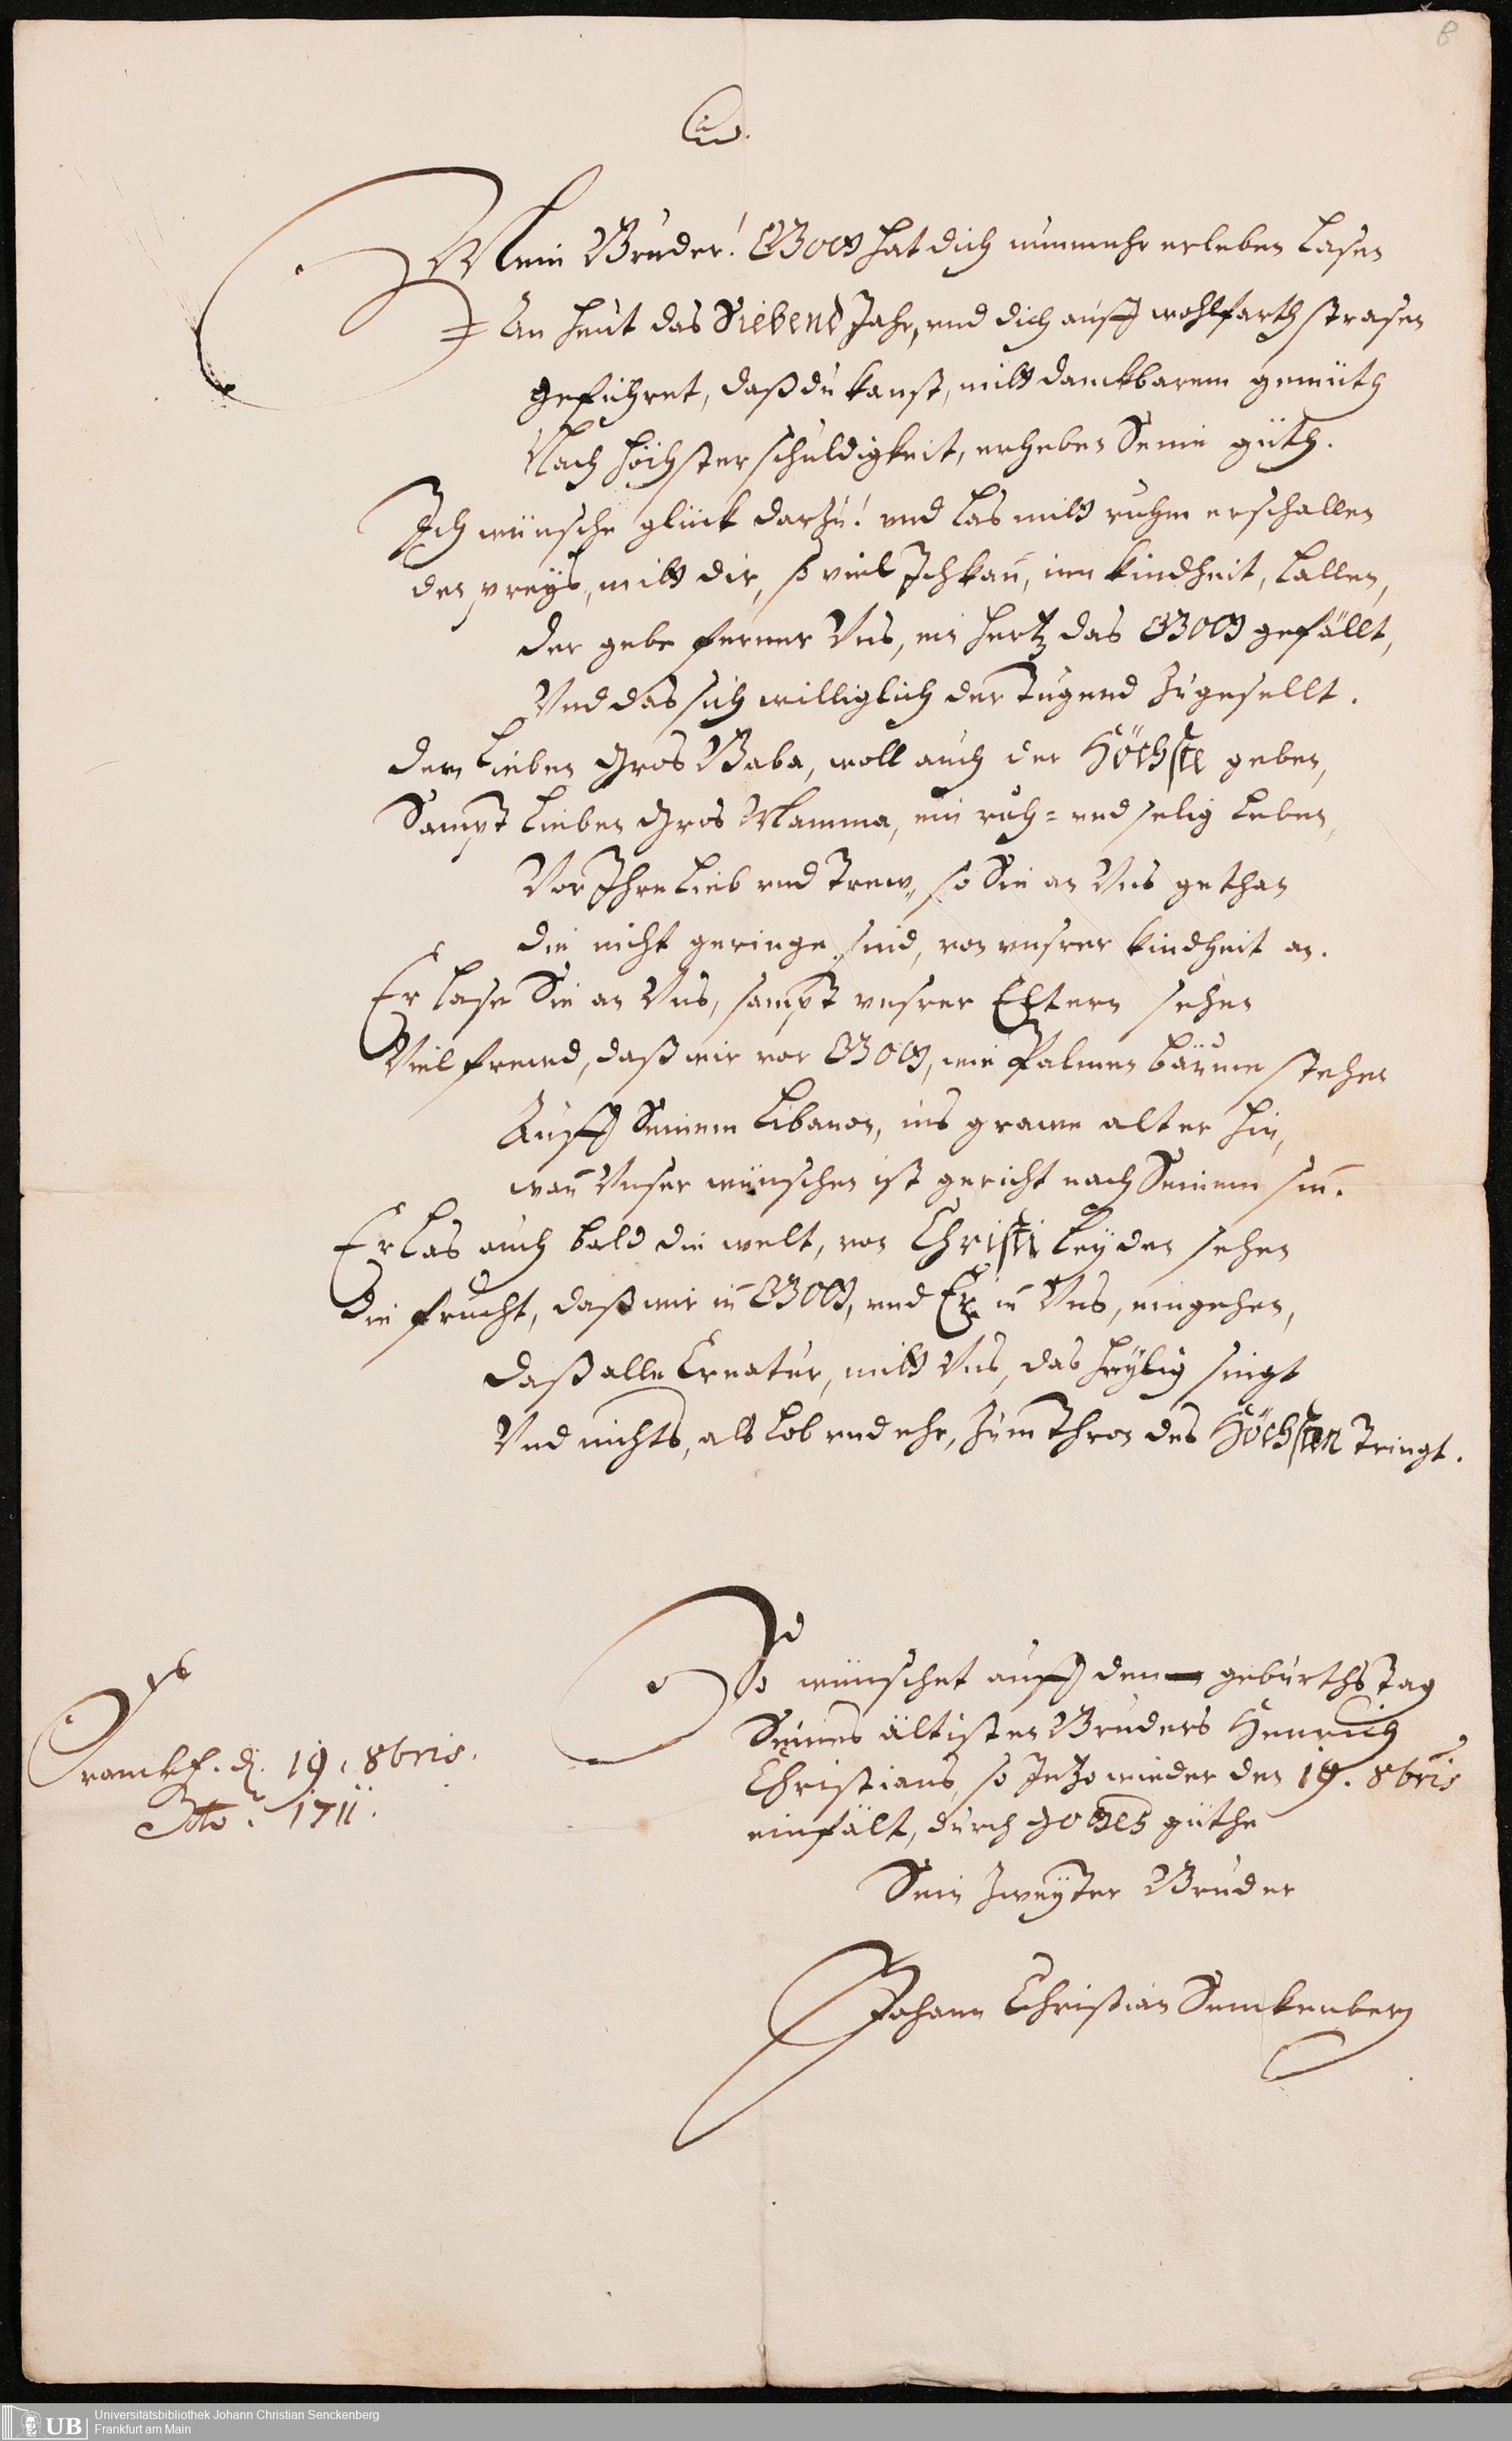 8
Mein Bruder! GOtt hat dich nunmehr erleben lasen
An heut das Siebend Jahr, und dich auff wohlfarth strasen
geführet, daß du kanst, mitt danckbarem gemüth
Nach höchster schuldigkeit, erheben Seine güth.
Ich wünsche glück darzu! und las mitt ruhm erschallen
den preyß, mitt dir, so viel Ich kan̄, inn kindheit, lallen,
der gebe ferner Uns, ein hertz das GOtt gefällt,
Und das sich williglich der Tugend zugesellt.
dem lieben Gros Baba, woll auch der Höchste geben,
Sampt lieben Gros Mamma, ein ruh- und selig leben,
Vor Ihre lieb und Trew, so Sie an Uns gethan
die nicht geringe sind, von unsrer kindheit an.
Er lase Sie an Uns, sampt unsrer Eltern sehen
Viel frewd, daß wir vor GOtt, wie Palmen bäume stehen
Auff Seinem Libanon, ins grawe alter hin,
wan̄ Unser wünschen ist gericht nach Seinem sin̄.
Er las auch bald die welt, von Christi leyden sehen
die frucht, daß wir in GOtt, und Er in Uns, eingehen,
daß alle Creatur, mitt Uns, das heylig singt
Und nichts, als lob und ehr, zum Thron des Höchsten Tringt.
So wünschet auff den geburths Tag
Seines ältisten Bruders Henrich
Christians, so Jetzo wieder den 19. 8bris
einfält, durch Gottes güthe
Sein zweyter Bruder
Johann Christian Senckenberg
Franckf. d. 19. 8bris.
Ao. 1711.
UB Universitätsbibliothek Johann Christian Senckenberg
Frankfurt am Main